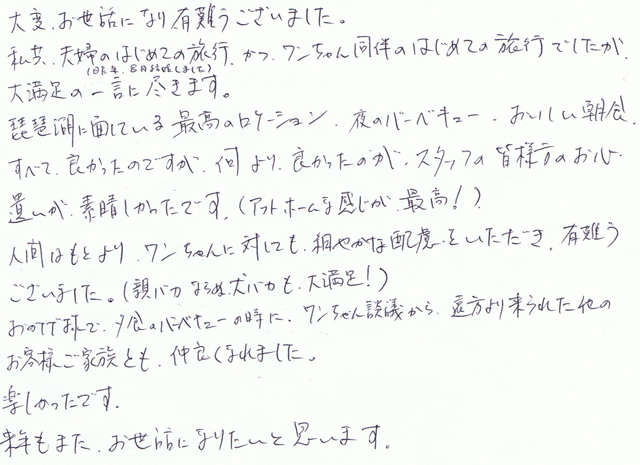 大変、お世話になり有難うございました。
私共、夫婦のはじめての旅行、かつ、ワンちゃん同伴のはじめての旅行でしたが、
(昨年、8月結婚しました)
大満足の一言に尽きます。
琵琶湖に面している最高のロケーション、夜のバーベキュー、おいしい朝食、
すべて、良かったのですが、何より、良かったのが、スタッフの皆様方のお心
遣いが、素晴しかったです。(アットホームな感じが、最高!)
人間はもとより、ワンちゃんに対しても、細やかな配慮をいただき、有難う
ございました。(親バカならぬ犬バカも、大満足!)
おかげ様で、夕食のバーベキューの時に、ワンちゃん談議から、遠方より来られた他の
お客様ご家族とも、仲良くなれました。
楽しかったです。
来年もまた、お世話になりたいと思います。